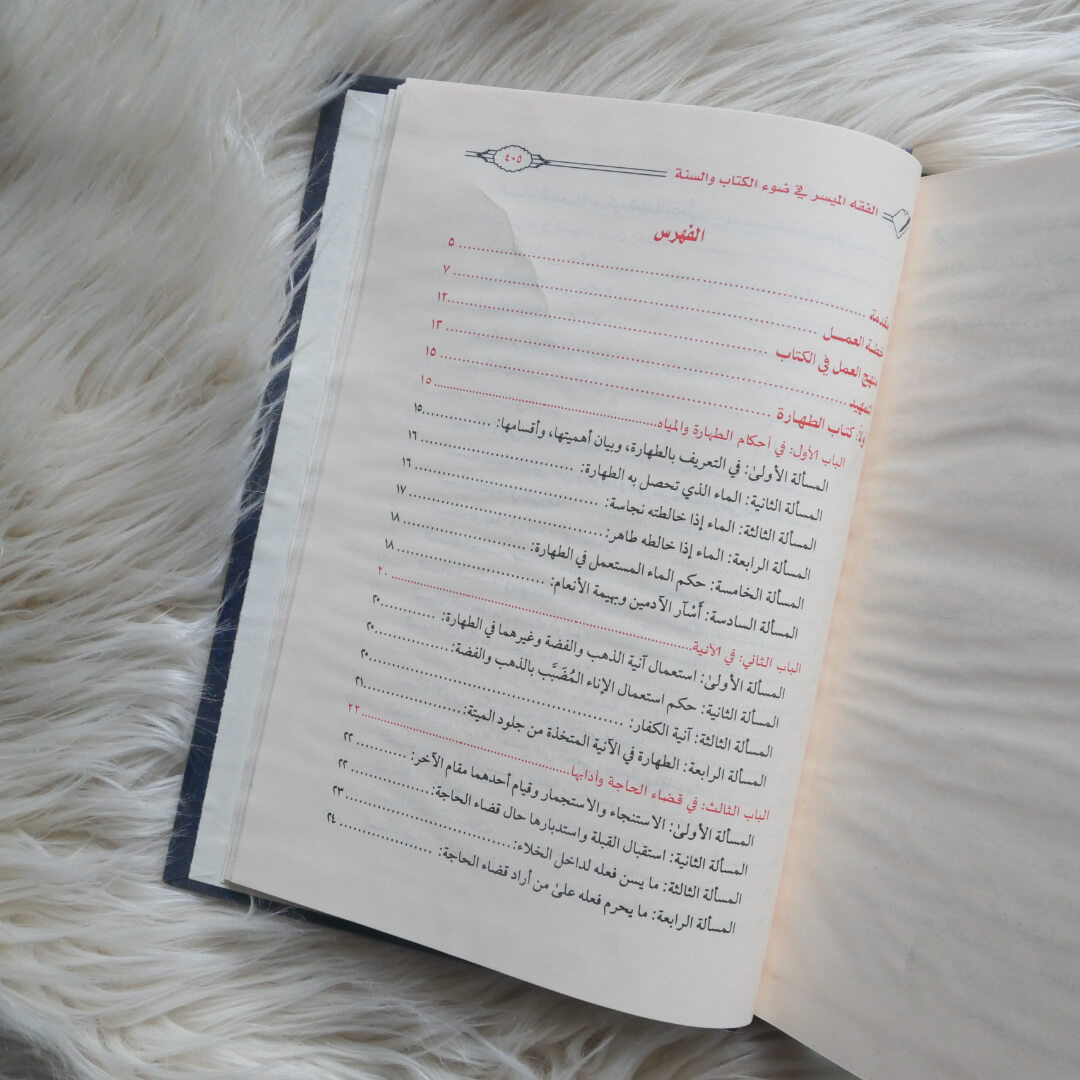 الفقه الميسر في ضوء الكتاب والسنة ٤٠٥
الفهرس
مقدمة ٥
خطة العمـــل ٧
منهج العمل في الكتاب ١٢
التمهيد ١٣
أولاً: كتاب الطهـارة ١٥
الباب الأول: في أحكام الطهارة والمياه ١٥
المسألة الأولىٰ: في التعريف بالطهارة، وبيان أهميتها، وأقسامها: ١٥
المسألة الثانية: الماء الذي تحصل به الطهارة: ١٦
المسألة الثالثة: الماء إذا خالطته نجاسة: ١٦
المسألة الرابعة: الماء إذا خالطه طاهر: ١٧
المسألة الخامسة: حكم الماء المستعمل في الطهارة: ١٨
المسألة السادسة: أَسْآر الآدمين وبهيمة الأنعام: ١٨
الباب الثاني: في الآنية ٢٠
المسألة الأولىٰ: استعمال آنية الذهب والفضة وغيرهما في الطهارة: ٢٠
المسألة الثانية: حكم استعمال الإناء المُضَبَّب بالذهب والفضة: ٢٠
المسألة الثالثة: آنية الكفار: ٢٠
المسألة الرابعة: الطهارة في الآنية المتخذة من جلود الميتة: ٢١
الباب الثالث: في قضاء الحاجة وآدابها ٢٢
المسألة الأولىٰ: الاستنجاء والاستجمار وقيام أحدهما مقام الآخر: ٢٢
المسألة الثانية: استقبال القبلة واستدبارها حال قضاء الحاجة: ٢٢
المسألة الثالثة: ما يسن فعله لداخل الخلاء: ٢٣
المسألة الرابعة: ما يحرم فعله علىٰ من أراد قضاء الحاجة: ٢٤